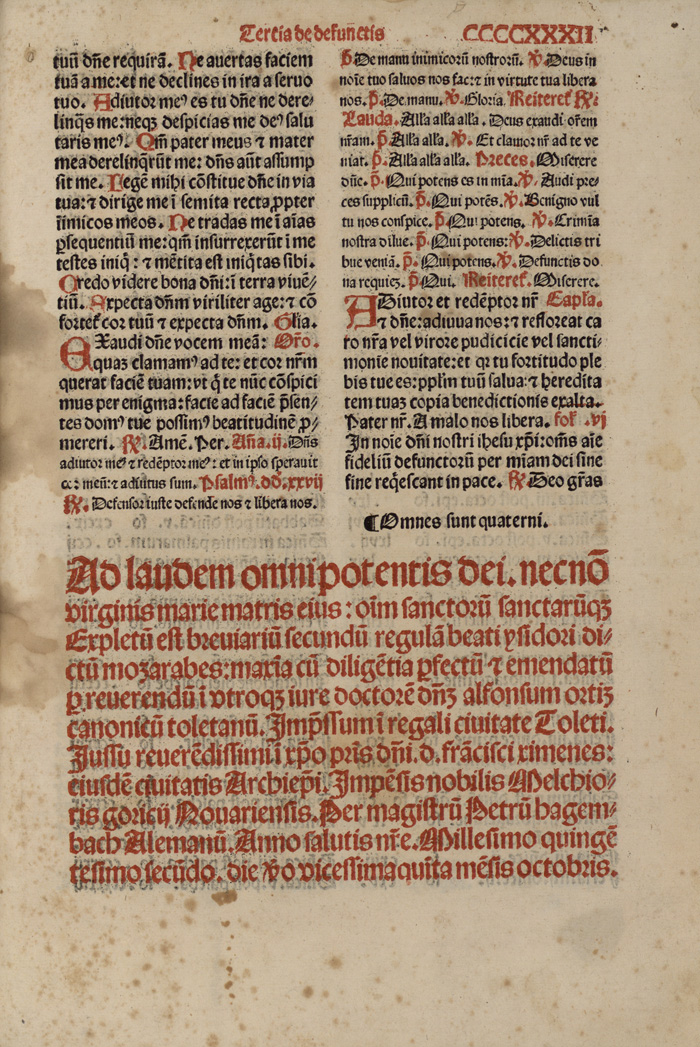 Tertia de defunctis
CCCCXXXII
tuū dn̄e requirā. Ne auertas faciem
tuā a me: et ne declines in ira a seruo
tuo. Adiutor meꝰ es tu dn̄e ne dere-
linq̄s me: neqꝫ despicias me deꝰ salu
taris meꝰ. Qm̄ pater meus ⁊ mater
mea derelinq̄rūt me: dn̄s aūt assump
sit me. Legē mihi cōstitue dn̄e in via
tua: ⁊ dirige me ī semita recta ꝓpter
īimicos meos. Ne tradas me ī aīas
ꝑsequentiū me: qm̄ insurrexerūt ī me
testes iniq̄: ⁊ mētita est iniq̄tas sibi.
Credo videre bona dn̄i: ī terra viuē-
tiū. Expecta dn̄m viriliter age: ⁊ cō
forteť cor tuū ⁊ expecta dn̄m. Gl̄ia.
EXaudi dn̄e vocem meā: Orō.
quaꝫ clamamꝰ ad te: et cor nr̄m
querat faciē tuam: vt q̄ te nūc cōspici
mus per enigma: facie ad faciē p̄sen-
tes domꝰ tue possimꝰ beatitudinē ꝓ-
mereri. ℟. Amē. Per. Añā.ij. Dn̄s
adiutor meꝰ ⁊ redēptor meꝰ: et in ipso sperauit
cor meū: ⁊ adiutus sum. Psalmꝰ. dd̄.xxvij
℟. Defensor iuste defende nos ⁊ libera nos.
p̄ De manu inimicorū nostrorū. ℣. Deus in
noīe tuo saluos nos fac: ⁊ in virtute tua libera
nos. p̄. De manu. ℣. Gloria. Reitereť ℟.
Lauda. Alľa alľa alľa. Deus exaudi or̄em
nr̄am. p̄ Alľa alľa. ℣. Et clamor nr̄ ad te ve
niat. p̄. Alľa alľa alľa. Preces. Miserere
dn̄e. p̄. Qui potens es in mīa. ℣. Audi pre-
ces supplicū. p̄. Qui potēs. ℣. Benigno vul
tu nos conspice. p̄. Qui potens. ℣. Crimīa
nostra dilue. p̄. Qui potens: ℣. Delictis tri
bue veniā. p̄. Qui potens. ℣. Defunctis do
na requiez. p̄. Qui. Reitereť. Miserere.
ADiutor et redēptor nr̄ Capľa.
⁊ dn̄e: adiuua nos: ⁊ refloreat ca
ro nr̄a vel virore pudicicie vel sancti-
monie nouitate: et qr tu fortitudo ple
bis tue es: pplm̄ tuū salua: ⁊ heredita
tem tuaꝫ copia benedictionis exalta.
Pater nr̄. A malo nos libera. fol̄. vj
In noīe dn̄i nostri ihesu xp̄i: om̄s aīe
fideliū defunctorū per mīam dei sine
fine req̄escant in pace. ℟ Deo gr̄as
¶ Omnes sunt quaterni.
Ad laudem omnipotentis dei. necnō
virginis marie matris eius: oīm sanctorū sanctarūqꝫ
Expletū est breuiariū secundū regulā beati ysidori di-
ctū mozarabes: maxīa cū diligētia ꝑfectū ⁊ emendatū
ꝑ reuerendū ī vtroqꝫ iure doctorē dn̄ꝫ alfonsum ortiz
canonicū toletanū. Imp̄ssum ī regali ciuitate Toleti.
Jussu reuerēdissimi ī xp̄o pr̄is dn̄i. d. frācisci ximenes:
eiusdē ciuitatis Archiep̄i. Impēsis nobilis Melchio-
ris goricij Nouariensis. Per magistrū Petrū hagem-
bach Alemanū. Anno salutis nr̄e. Millesimo quingē
tesimo secūdo. die v̄o vicessimaquīta mēsis octobris.